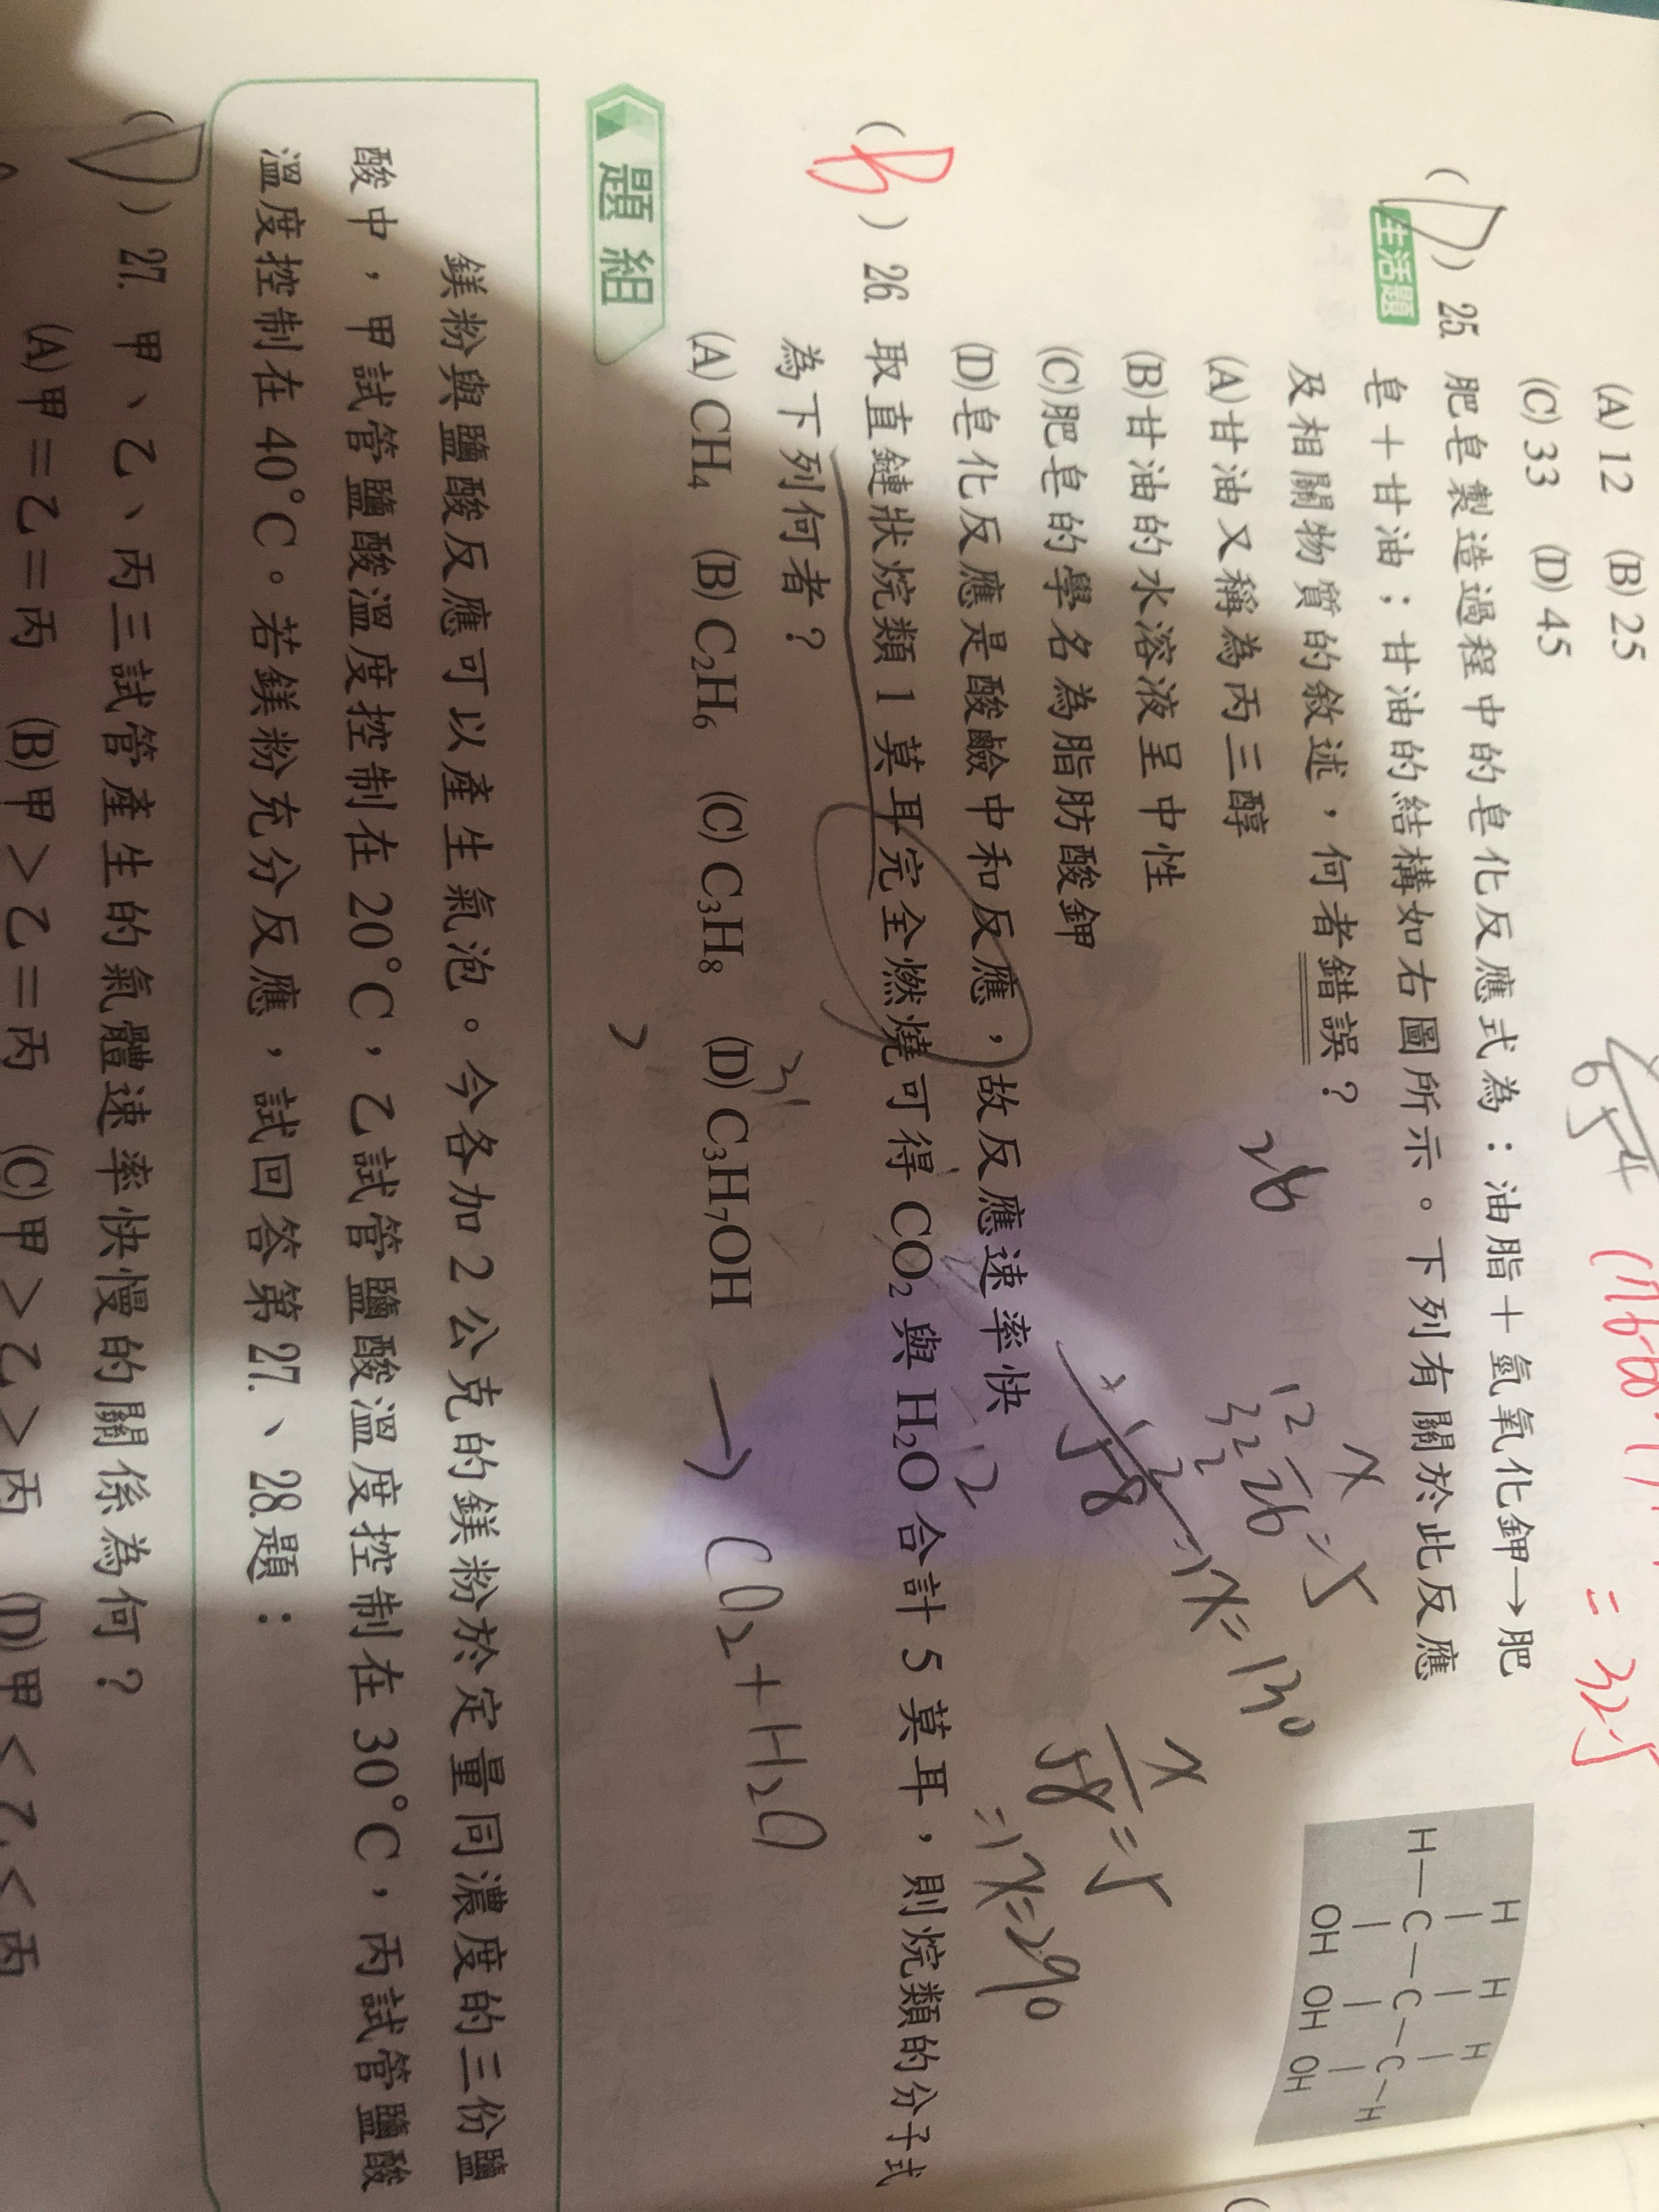 (A) 12 (B) 25
(C) 33 (D) 45
(D) 25. 肥皂製造過程中的皂化反應式為：油脂＋氫氧化鉀→肥
生活題 皂＋甘油；甘油的結構如右圖所示。下列有關於此反應
及相關物質的敘述，何者錯誤？
(A)甘油又稱為丙三醇
(B)甘油的水溶液呈中性
(C)肥皂的學名為脂肪酸鉀
(D)皂化反應是酸鹼中和反應，故反應速率快
H H H
H—C—C—C—H
OH OH OH
26
x
12
32 26 = 5
2
=) x = 130
x
58 = 5
=) x = 290
58
(B) 26. 取直鏈狀烷類 1 莫耳完全燃燒可得 CO₂ 與 H₂O 合計 5 莫耳，則烷類的分子式
為下列何者？
(A) CH₄ (B) C₂H₆ (C) C₃H₈ (D) C₃H₇OH → CO₂ + H₂O
題組
鎂粉與鹽酸反應可以產生氣泡。今各加 2 公克的鎂粉於定量同濃度的三份鹽
酸中，甲試管鹽酸溫度控制在 20°C，乙試管鹽酸溫度控制在 30°C，丙試管鹽酸
溫度控制在 40°C。若鎂粉充分反應，試回答第 27.、28.題：
(D) 27. 甲、乙、丙三試管產生的氣體速率快慢的關係為何？
(A)甲＝乙＝丙 (B)甲＞乙＝丙 (C)甲＞乙＞丙 (D)甲＜乙＜丙